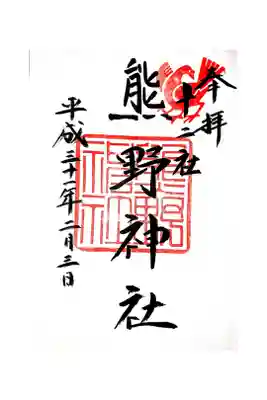 奉拝
十二社
熊野神社
平成三十一年二月三日
熊野神社